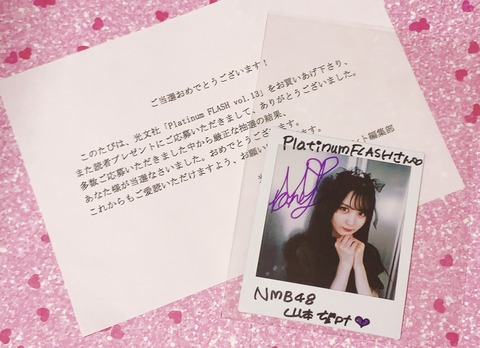 ご当選おめでとうございます！
このたびは、光文社「Platinum FLASH vol.13」をお買いあげ下さり、
また読者プレゼントにご応募いただきまして、ありがとうございました。
多数ご応募いただきました中から厳正な抽選の結果、
あなた様が当選なさいました。おめでとうございます。
これからもご愛読いただけますよう、お願い
編集部
Platinum FLASHさん
NMB48
山本